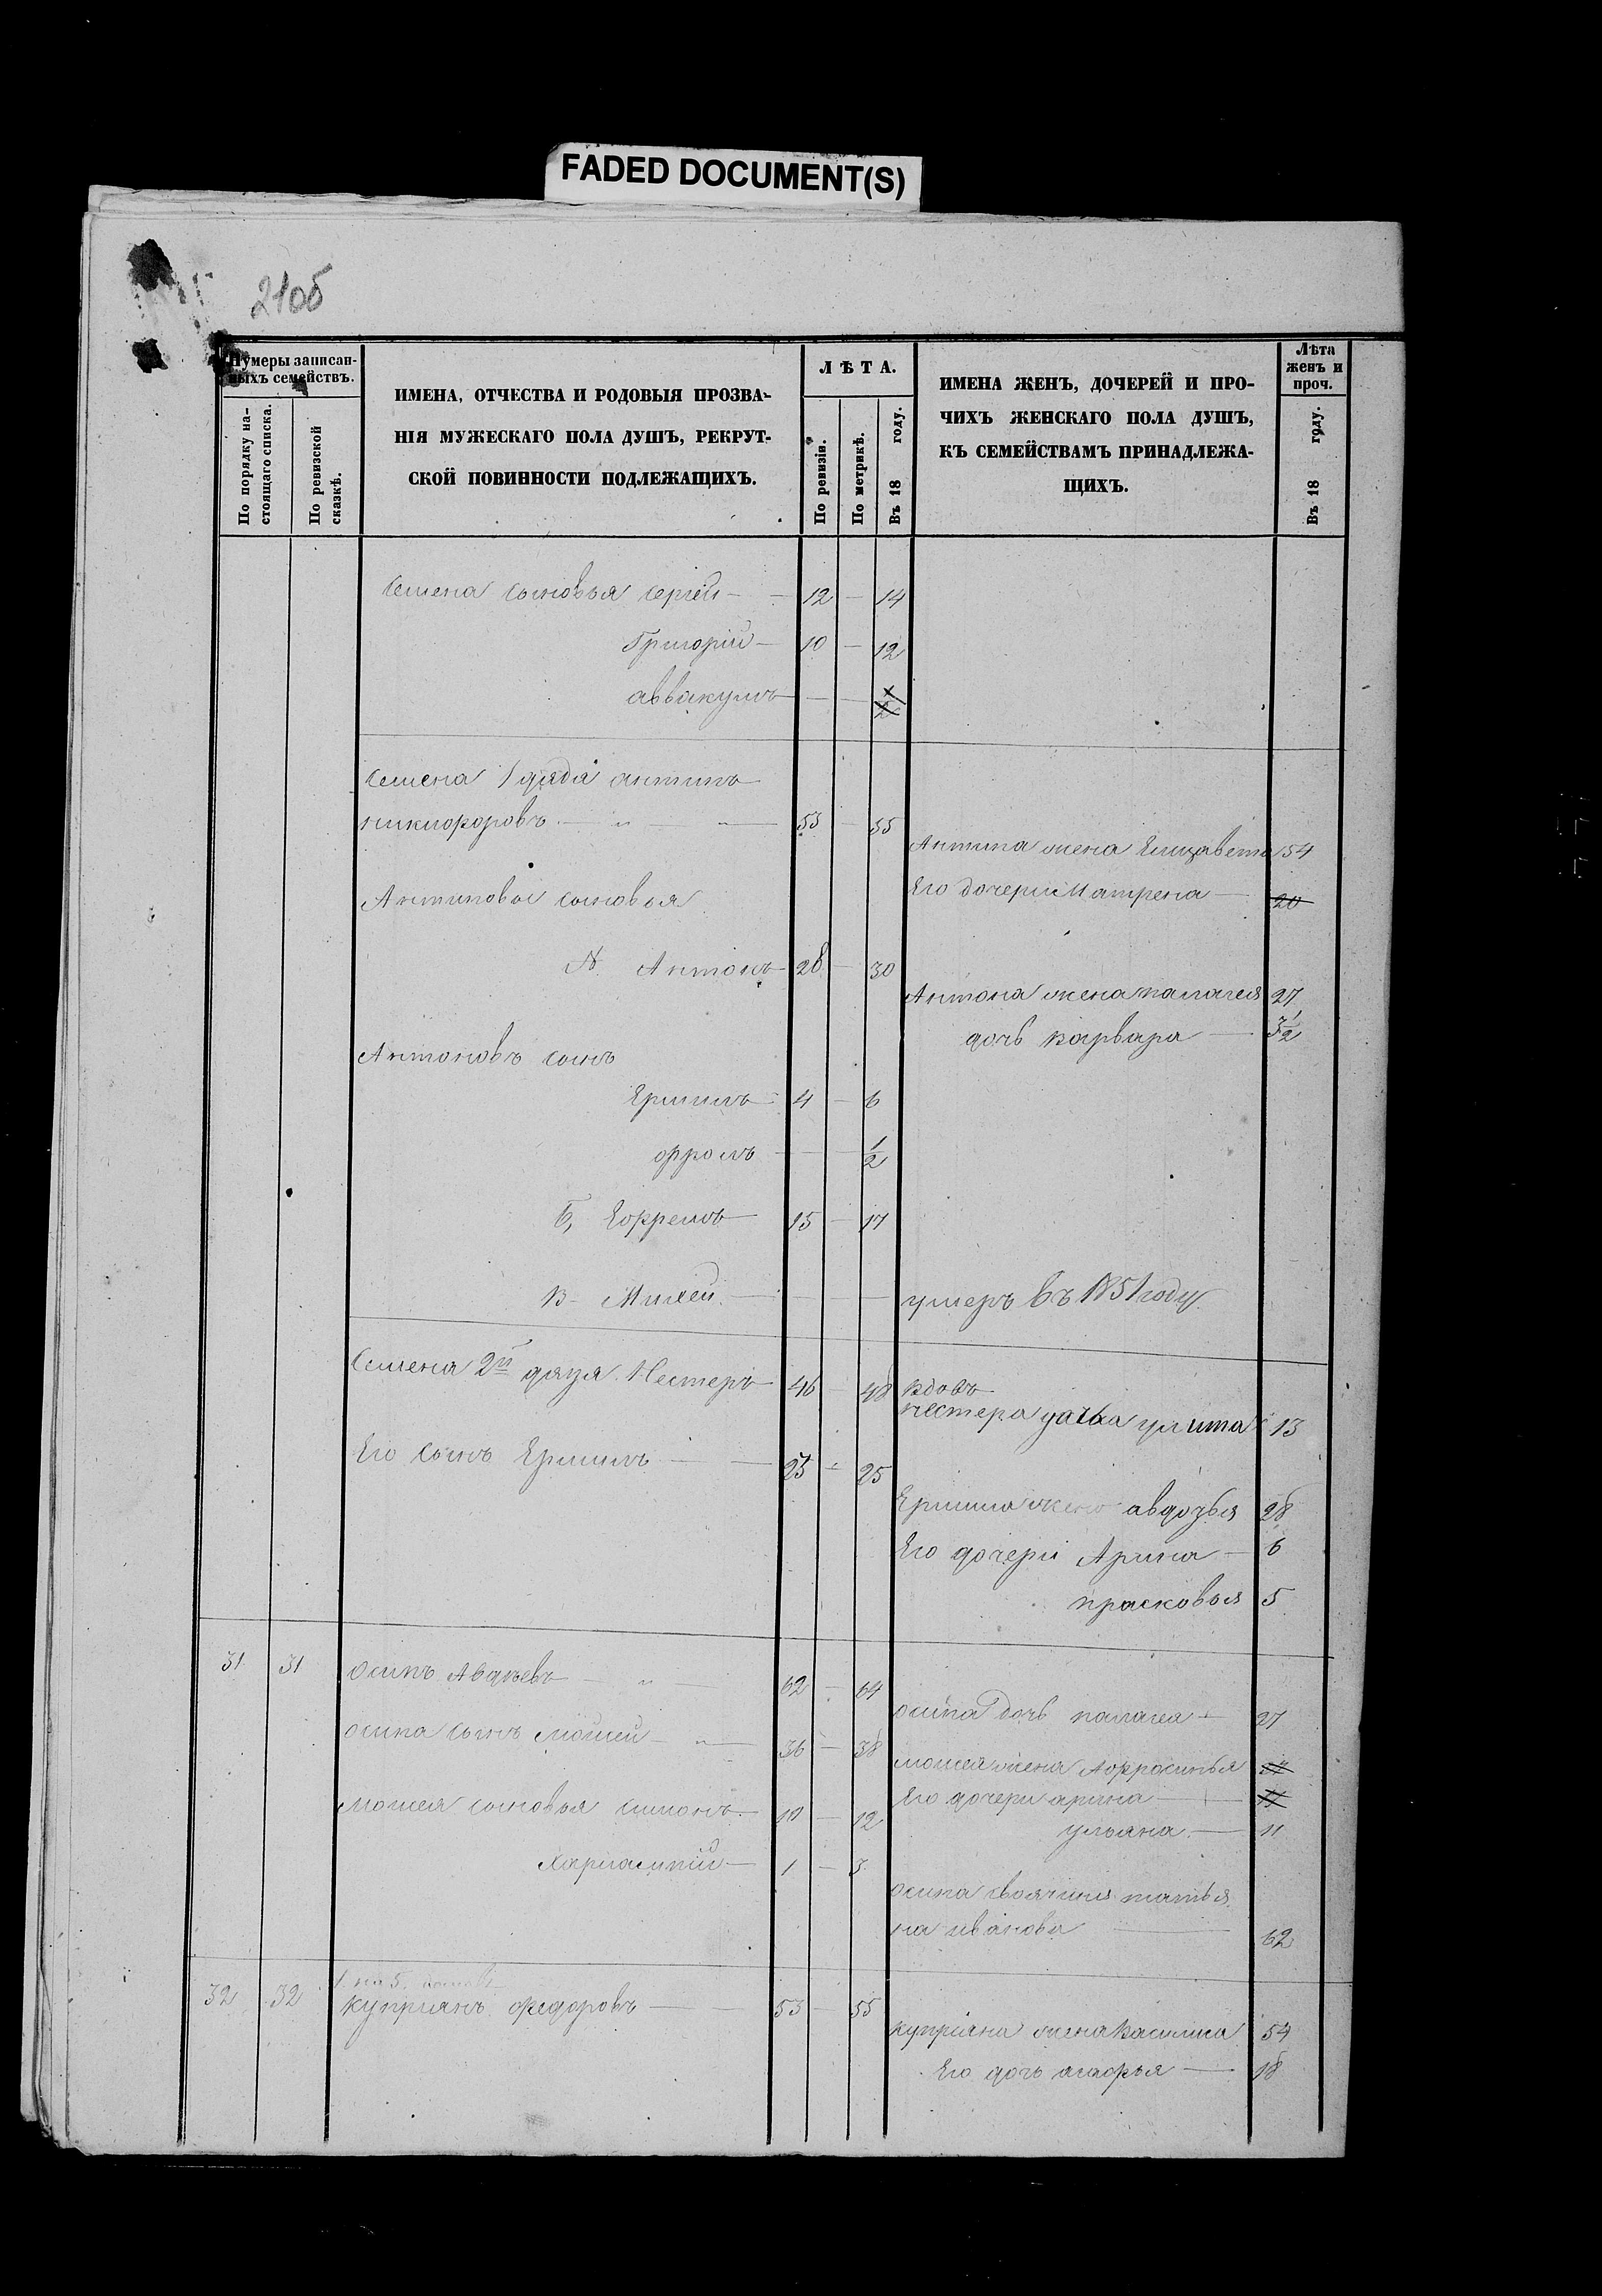 FADED DOCUMENT(S)
210б
Нумеры записан-
ныхъ семействъ.
По порядку на-
стоящаго списка.
По ревизской
сказкѣ.
ИМЕНА, ОТЧЕСТВА И РОДОВЫЯ ПРОЗВА-
НІЯ МУЖЕСКАГО ПОЛА ДУШЪ, РЕКРУТ-
СКОЙ ПОВИННОСТИ ПОДЛЕЖАЩИХЪ.
ЛѢТА.
По ревизіи.
По метрикѣ.
Въ 18 году.
ИМЕНА ЖЕНЪ, ДОЧЕРЕЙ И ПРО-
ЧИХЪ ЖЕНСКАГО ПОЛА ДУШЪ,
КЪ СЕМЕЙСТВАМЪ ПРИНАДЛЕЖА-
ЩИХЪ.
Лѣта
женъ и
проч.
Въ 18 году.
Семена сыновья сергѣй — 12 — 14
Григорій — 10 — 12
аввакумъ — — 1/2
Семена 1 дядя антипъ
никифоровъ — 53 — 55
Антипа жена Елизавета 54
Антиповы сыновья
Его дочери Матрена — 20
А Антонъ 28 — 30
Антона жена палагея 27
дочь варвара — 3 1/2
Антоновъ сынъ
Ермилъ 4 — 6
фролъ — — 1/2
Б, Ефремъ 15 — 17
В Михей — — — умеръ въ 1851 году.
Семена 2й дядя Нестеръ 46 — 48 вдовъ
нестера дочь улита 13
Его сынъ Ермилъ — 23 — 25
Ермила жена авдотья 28
Его дочери Арина — 6
прасковья 5
31 31 осипъ Авдѣевъ — 62 — 64
осипа дочь палагея — 27
осипа сынъ Мойсей — 36 — 38
мойсея жена Афросинья
Его дочери арина —
мойсея сыновья симонъ — 10 — 12
ульяна — 11
Харлампій — 1 — 3
осипа своячиня татья
на иванова — 62
32 32 куприянъ федоровъ — 53 — 55
куприяна жена василиса 54
Его дочь агафья — 18